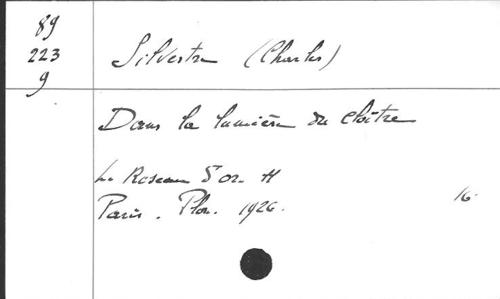 89
223
9
Silvestre (Charles)
Dans la lumière du cloître
Le Roseau d'or. 11
Paris. Plon. 1926.
16.